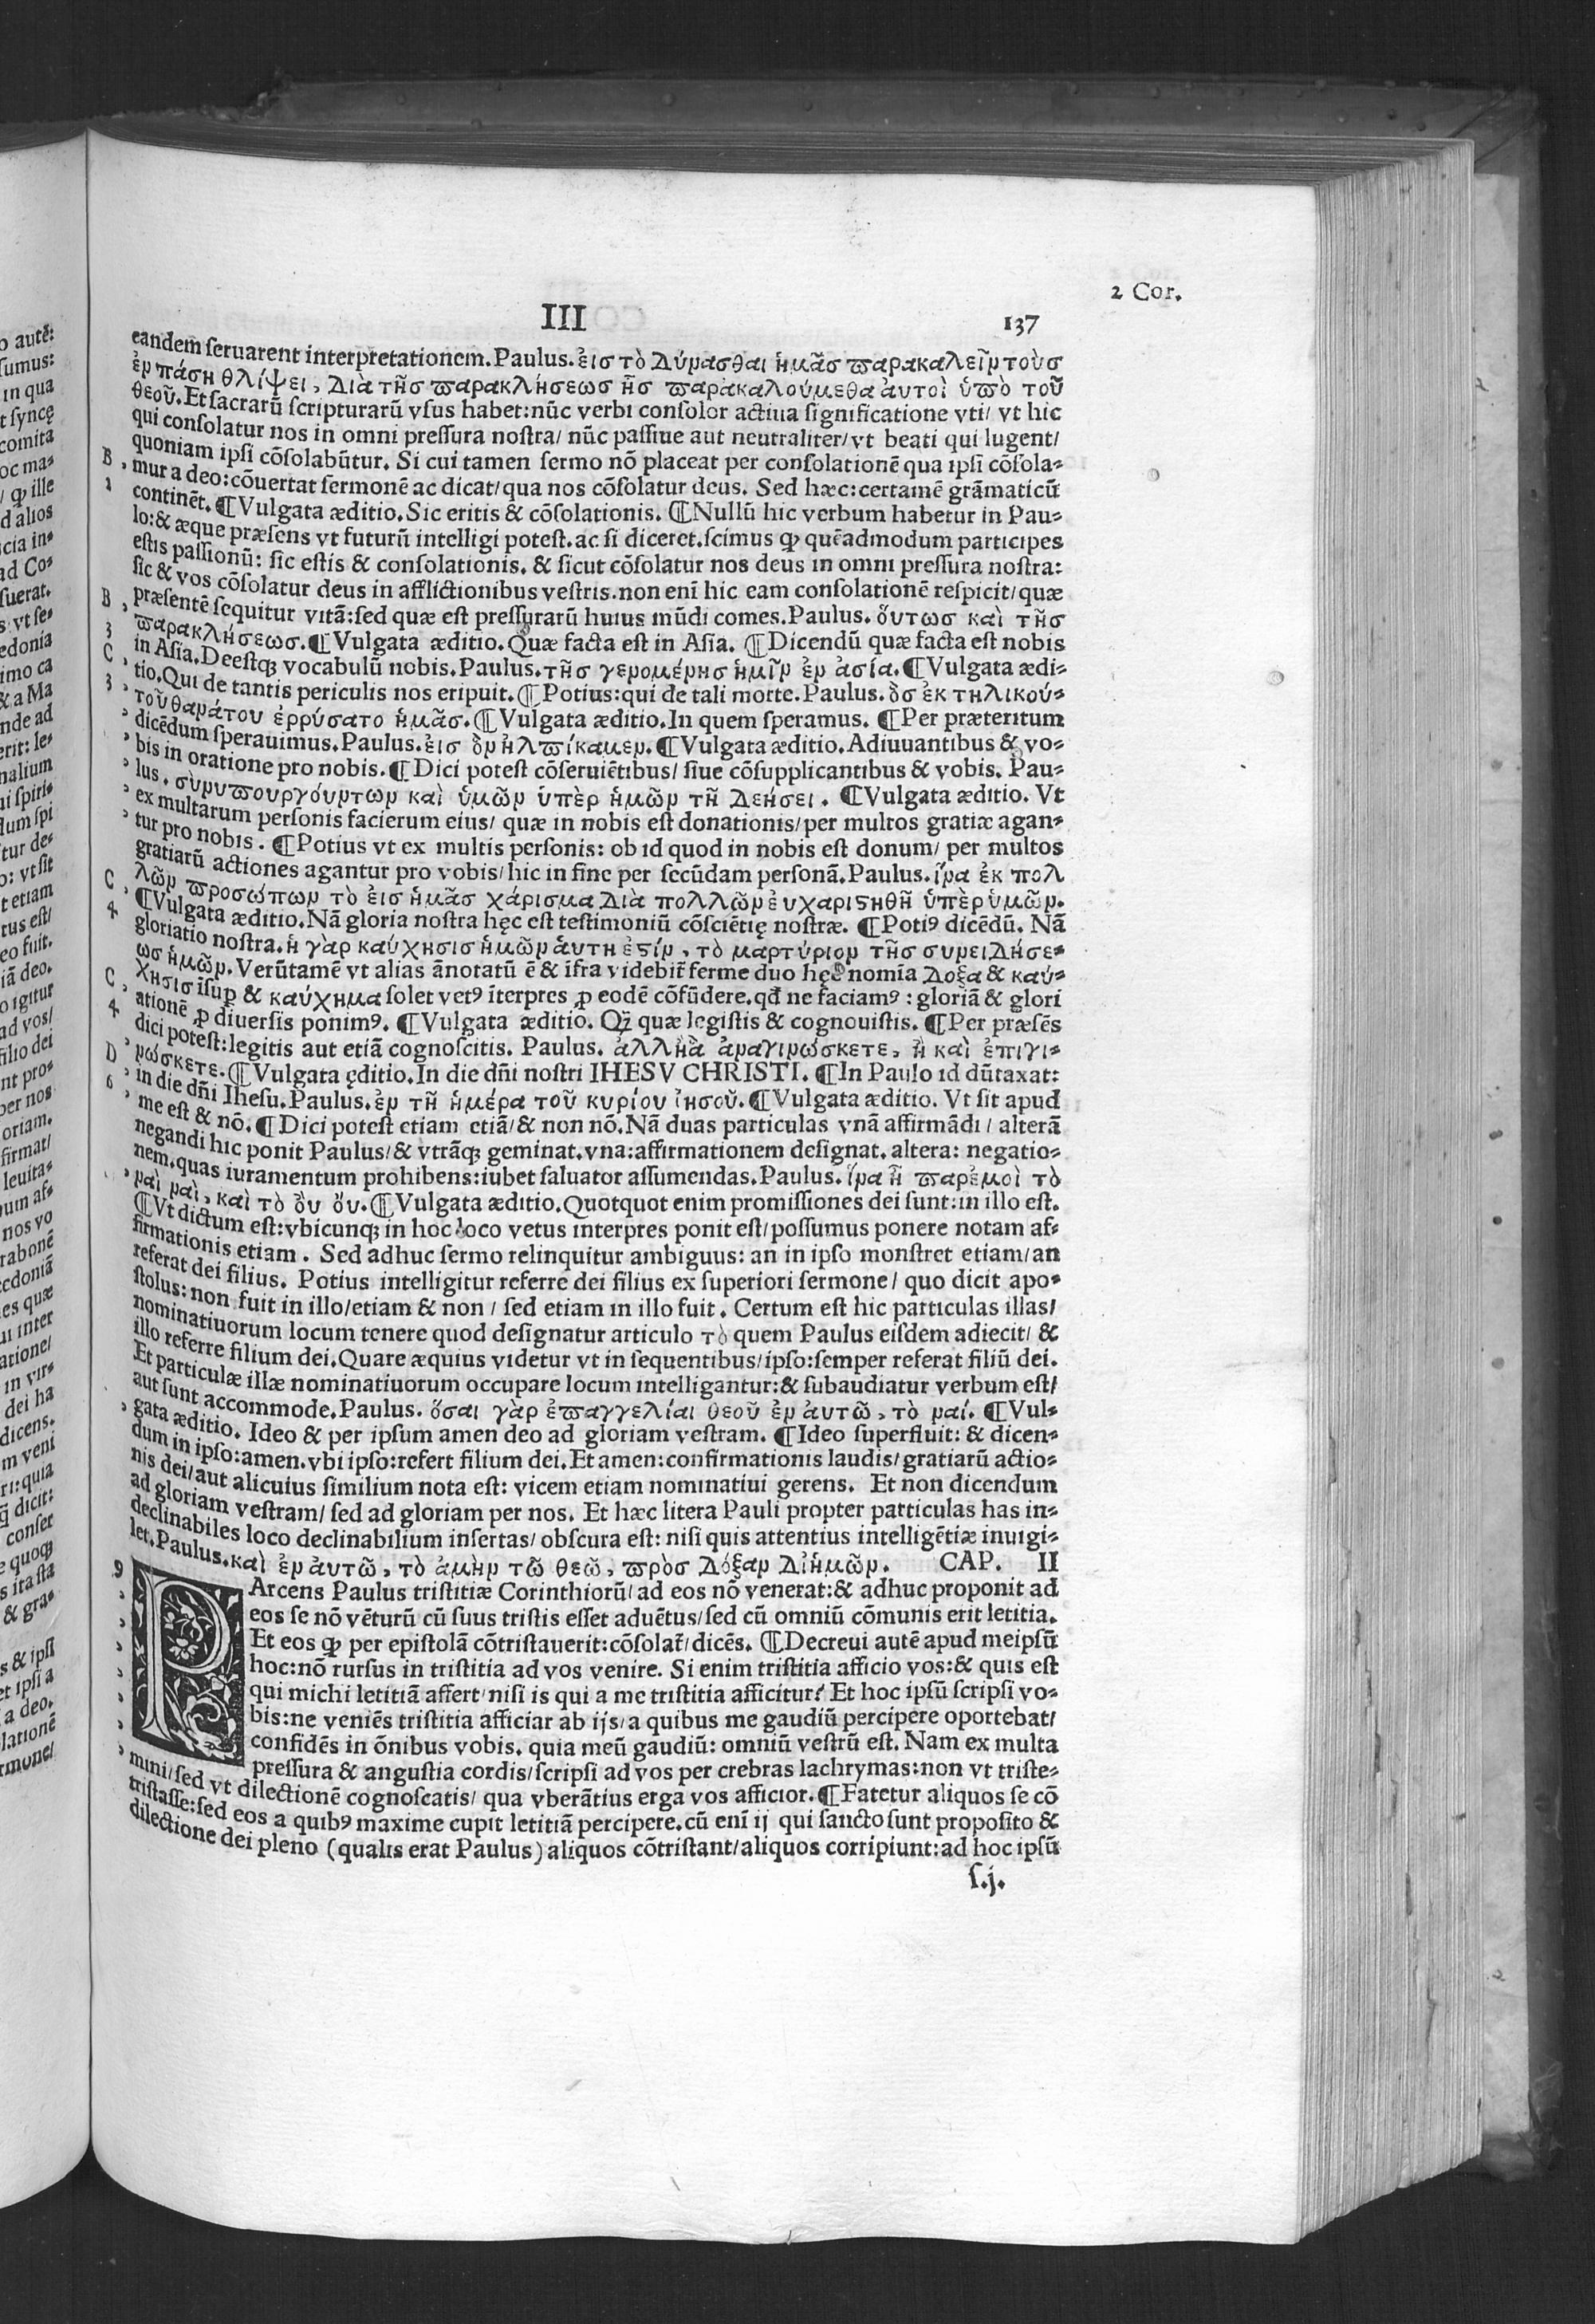 2 Cor.
III
137
eandem seruarent interpretationem. Paulus. ἐις τὸ δύνασθαι ἡμᾶς παρακαλεῖν τοὺς
ἐν πάσῃ θλίψει, διὰ τῆς παρακλήσεως ἧς παρακαλούμεθα ἀυτοὶ ὑπὸ τοῦ
θεοῦ. Et sacrarū scripturarū vsus habet: nūc verbi consolor actiua significatione vti/ vt hic
qui consolatur nos in omni pressura nostra/ nūc passiue aut neutraliter/ vt beati qui lugent/
quoniam ipsi cōsolabūtur. Si cui tamen sermo nō placeat per consolationē qua ipsi cōsola-
B , mur a deo: cōuertat sermonē ac dicat/ qua nos cōsolatur deus. Sed hæc: certamē grāmaticū
1 continēt. ¶ Vulgata æditio. Sic eritis & cōsolationis. ¶ Nullū hic verbum habetur in Pau-
lo: & æque præsens vt futurū intelligi potest. ac si diceret. scimus ꝙ quēadmodum participes
estis passionū: sic estis & consolationis. & sicut cōsolatur nos deus in omni pressura nostra:
sic & vos cōsolatur deus in afflictionibus vestris. non enī hic eam consolationē respicit/ quæ
B , præsentē sequitur vitā: sed quæ est pressurarū huius mūdi comes. Paulus. ὅυτως καὶ τῆς
3 παρακλήσεως. ¶ Vulgata æditio. Quæ facta est in Asia. ¶ Dicendū quæ facta est nobis
C , in Asia. Deestqꝫ vocabulū nobis. Paulus. τῆς γενομένης ἡμῖν ἐν ἀσία. ¶ Vulgata ædi-
3 , tio. Qui de tantis periculis nos eripuit. ¶ Potius: qui de tali morte. Paulus. ὃς ἐκ τηλικού-
τοῦ θανάτου ἐρρύσατο ἡμᾶς. ¶ Vulgata æditio. In quem speramus. ¶ Per præteritum
, dicēdum sperauimus. Paulus. ἐις ὃν ἠλπίκαμεν. ¶ Vulgata æditio. Adiuuantibus & vo-
, bis in oratione pro nobis. ¶ Dici potest cōseruiētibus/ siue cōsupplicantibus & vobis. Pau-
, lus. σὺνυπουργόυντων καὶ ὑμῶν ὑπὲρ ἡμῶν τῆ δεήσει. ¶ Vulgata æditio. Vt
, ex multarum personis facierum eius/ quæ in nobis est donationis/ per multos gratiæ agan-
, tur pro nobis. ¶ Potius vt ex multis personis: ob id quod in nobis est donum/ per multos
gratiarū actiones agantur pro vobis/ hic in fine per secūdam personā. Paulus. ἵνα ἐκ πολ
C , λῶν προσώπων τὸ ἐις ἡμᾶς χάρισμα διὰ πολλῶν ἐυχαριστηθῆ ὑπὲρ ὑμῶν.
4 ¶ Vulgata æditio. Nā gloria nostra hęc est testimoniū cōsciētię nostræ. ¶ Potiꝰ dicēdū. Nā
gloriatio nostra. ἡ γὰρ καύχησις ἡμῶν ἁυτη ἐστίν, τὸ μαρτύριον τῆς συνειδήσε-
ως ἡμῶν. Verūtamē vt alias ānotatū ē & īfra videbit̄ ferme duo hęc nomīa δοξα & καύ-
C , χησις isup̱ & καύχημα solet vetꝰ īterpres ꝓ eodē cōfūdere. qd̄ ne faciamꝰ: gloriā & glori
4 ationē ꝓ diuersis ponimꝰ. ¶ Vulgata æditio. Qꝫ quæ legistis & cognouistis. ¶ Per præsēs
, dici potest: legitis aut etiā cognoscitis. Paulus. ἀλλ' ἢ ἃ ἀναγινώσκετε, ἢ καὶ ἐπιγι-
D , νώσκετε. ¶ Vulgata ęditio. In die dn̄i nostri IHESV CHRISTI. ¶ In Paulo id dūtaxat:
6 in die dn̄i Ihesu. Paulus. ἐν τῆ ἡμέρα τοῦ κυρίου ἰησοῦ. ¶ Vulgata æditio. Vt sit apud
, me est & nō. ¶ Dici potest etiam etiā/ & non nō. Nā duas particulas vnā affirmādi/ alterā
negandi hic ponit Paulus/ & vtrāqꝫ geminat. vna: affirmationem designat. altera: negatio-
nem. quas iuramentum prohibens: iubet saluator assumendas. Paulus. ἵνα ἦ παρἐμοὶ τὸ
, ναὶ ναὶ, καὶ τὸ ὂυ ὄυ. ¶ Vulgata æditio. Quotquot enim promissiones dei sunt: in illo est.
¶ Vt dictum est: vbicunqꝫ in hoc loco vetus interpres ponit est/ possumus ponere notam af-
firmationis etiam. Sed adhuc sermo relinquitur ambiguus: an in ipso monstret etiam/ an
referat dei filius. Potius intelligitur referre dei filius ex superiori sermone/ quo dicit apo-
stolus: non fuit in illo/ etiam & non/ sed etiam in illo fuit. Certum est hic particulas illas/
nominatiuorum locum tenere quod designatur articulo τὸ quem Paulus eisdem adiecit/ &
illo referre filium dei. Quare æquius videtur vt in sequentibus/ ipso: semper referat filiū dei.
Et particulæ illæ nominatiuorum occupare locum intelligantur: & subaudiatur verbum est/
aut sunt accommode. Paulus. ὅσαι γὰρ ἐπαγγελίαι θεοῦ ἐν ἀυτῶ, τὸ ναί. ¶ Vul-
, gata æditio. Ideo & per ipsum amen deo ad gloriam vestram. ¶ Ideo superfluit: & dicen-
dum in ipso: amen. vbi ipso: refert filium dei. Et amen: confirmationis laudis/ gratiarū actio-
nis dei/ aut alicuius similium nota est: vicem etiam nominatiui gerens. Et non dicendum
ad gloriam vestram/ sed ad gloriam per nos. Et hæc litera Pauli propter particulas has in-
declinabiles loco declinabilium insertas/ obscura est: nisi quis attentius intelligētiæ inuigi-
let. Paulus. καὶ ἐν ἀυτῶ, τὸ ἀμὴν τῶ θεῶ, πρὸς δόξαν δἰἡμῶν. CAP. II
9 PArcens Paulus tristitiæ Corinthiorū/ ad eos nō venerat: & adhuc proponit ad
eos se nō vēturū cū suus tristis esset aduētus/ sed cū omniū cōmunis erit letitia.
Et eos ꝙ per epistolā cōtristauerit: cōsolat̄/ dicēs. ¶ Decreui autē apud meipsū
hoc: nō rursus in tristitia ad vos venire. Si enim tristitia afficio vos: & quis est
qui michi letitiā affert/ nisi is qui a me tristitia afficitur? Et hoc ipsū scripsi vo-
bis: ne veniēs tristitia afficiar ab ijs/ a quibus me gaudiū percipere oportebat/
confidēs in ōnibus vobis. quia meū gaudiū: omniū vestrū est. Nam ex multa
pressura & angustia cordis/ scripsi ad vos per crebras lachrymas: non vt triste-
, mini/ sed vt dilectionē cognoscatis/ qua vberātius erga vos afficior. ¶ Fatetur aliquos se cō
tristasse: sed eos a quibꝰ maxime cupit letitiā percipere. cū enī ij qui sancto sunt proposito &
dilectione dei pleno (qualis erat Paulus) aliquos cōtristant/ aliquos corripiunt: ad hoc ipsū
s.j.